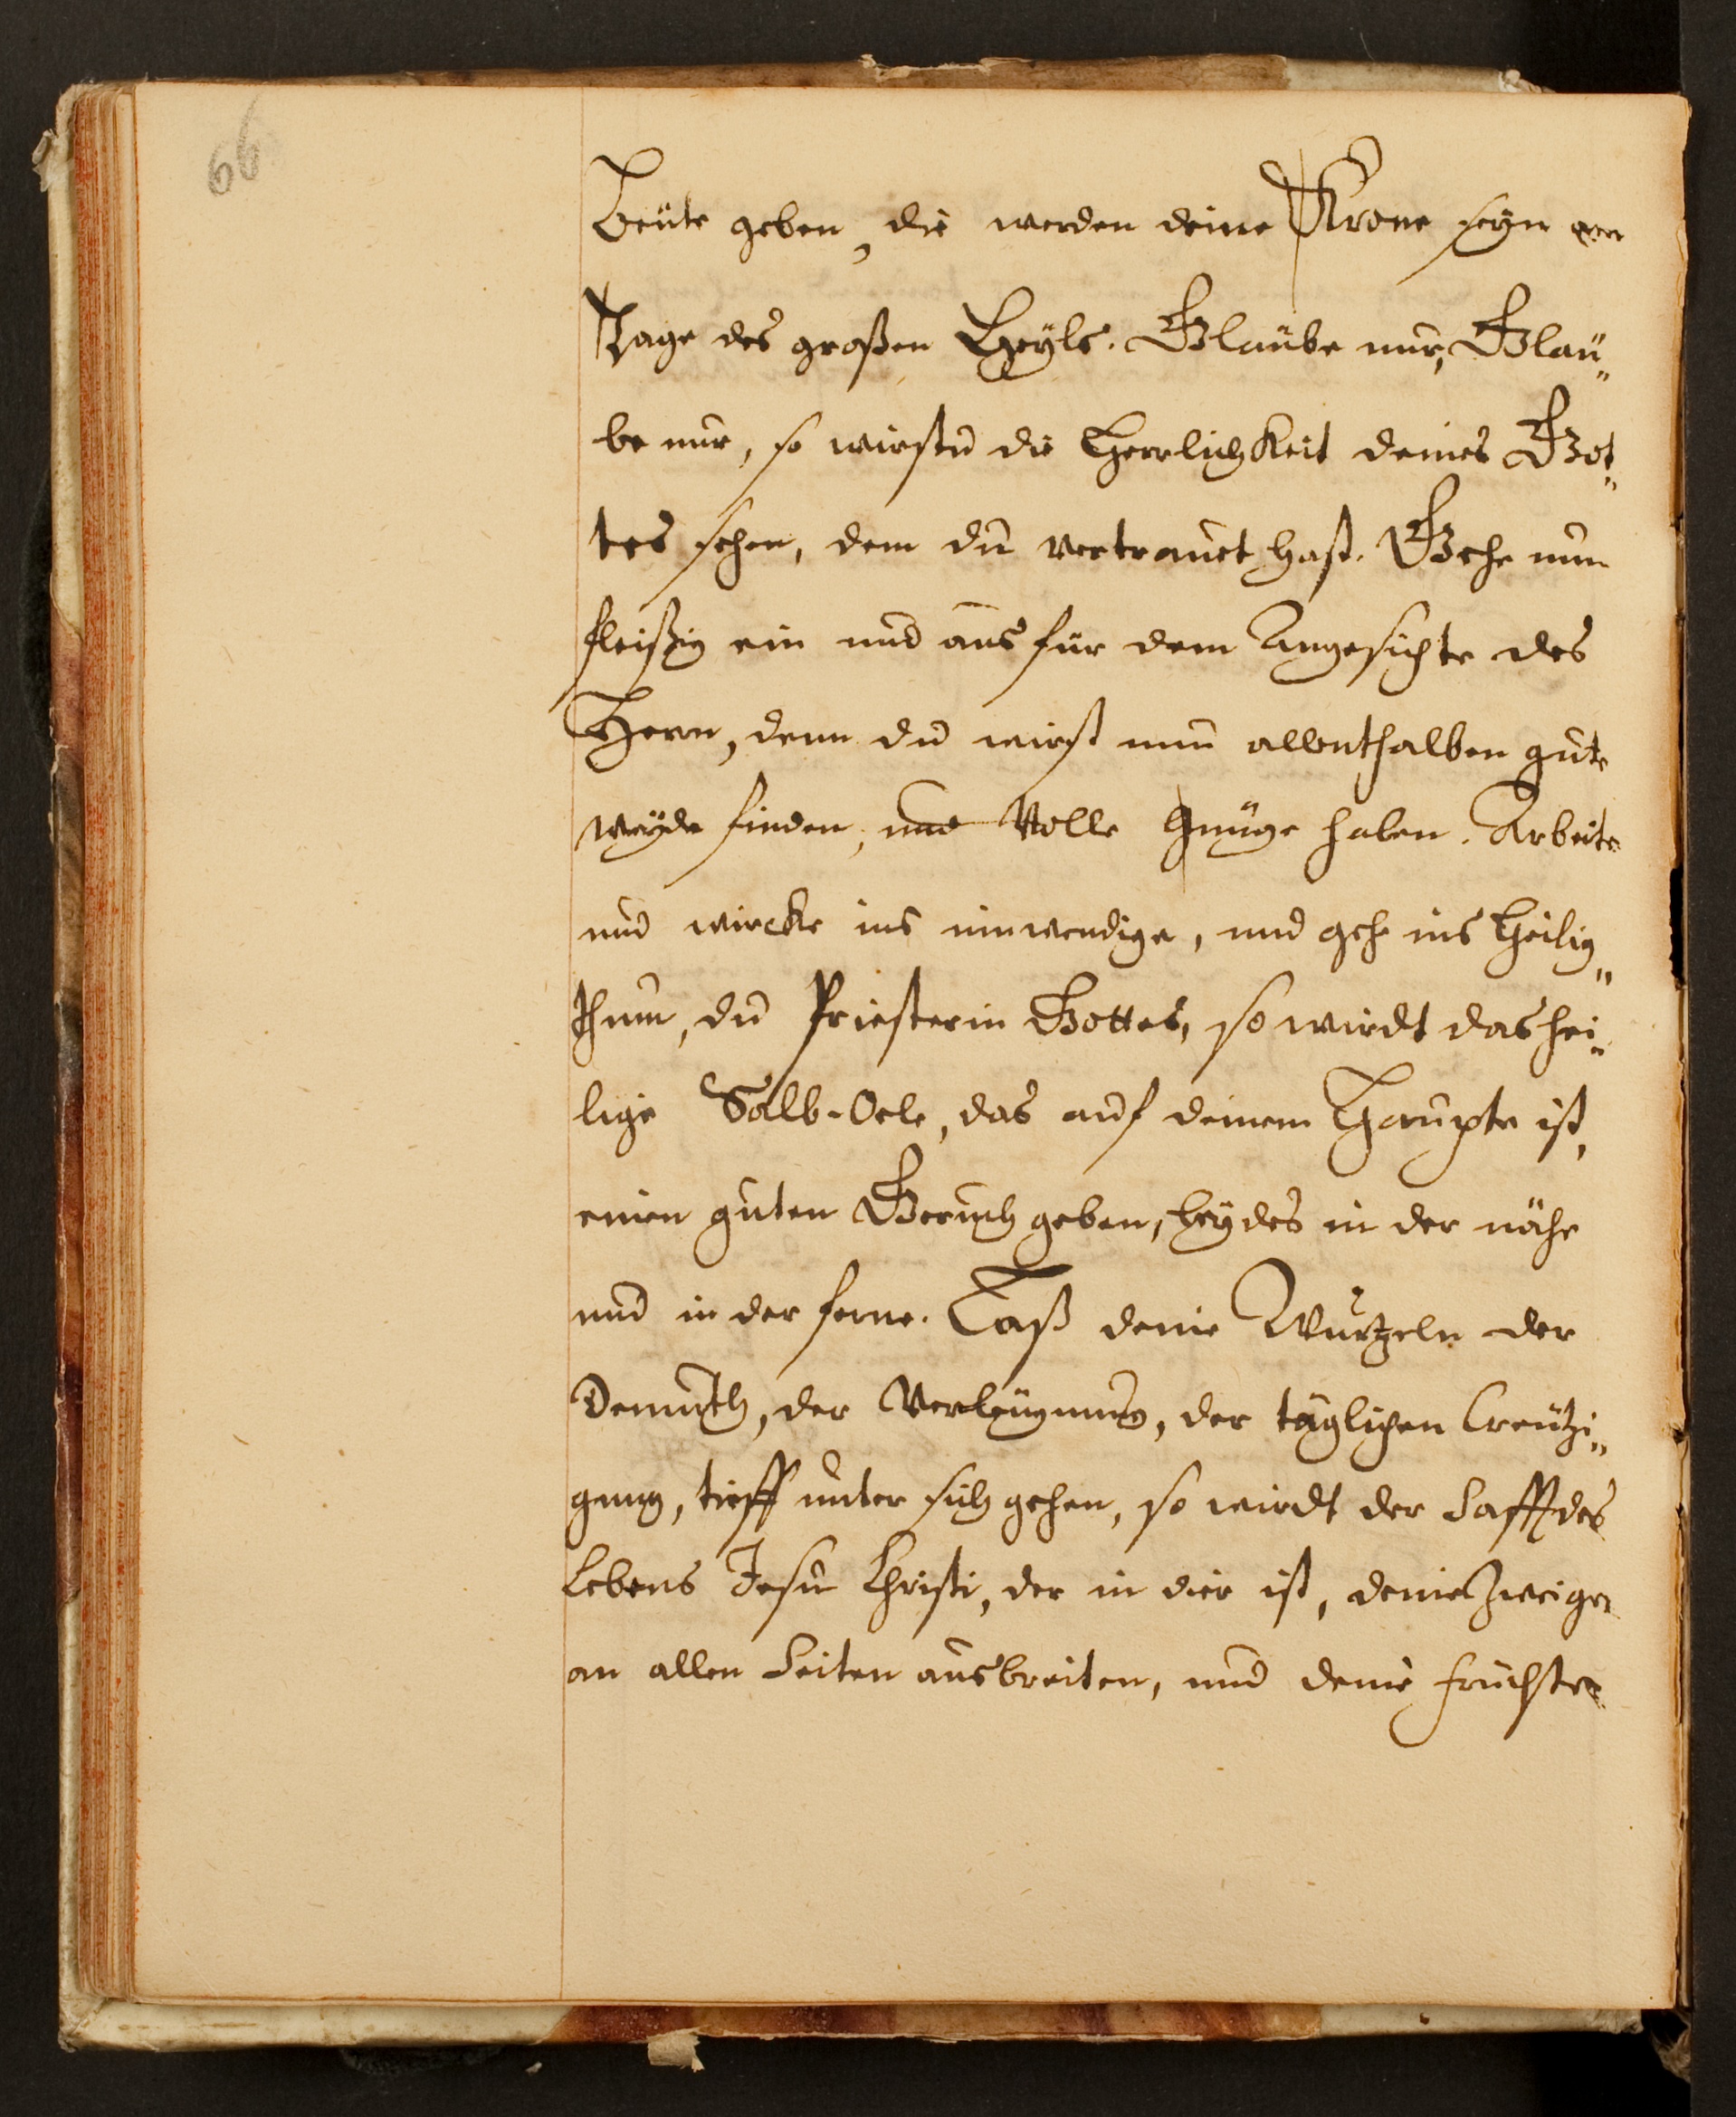 66
Beute geben, die werden deine Krone seyn am
Tage des großen Heyls. Glaube nur, Glau„
be nur, so wirstu die Herrlichkeit deines Got„
tes sehen, dem du vertrauet hast. Gehe nun
fleißig ein und aus für dem Angesichte des
Herrn, denn du wirst nun allenthalben gute
weyde finden, und Volle gnüge haben. Arbeite
und wircke ins inwendige, und geh ins Heilig„
thum, du Priesterin Gottes, so wirdt das hei„
lige Salb-Oele, das auf deinem Haupte ist,
einen guten Geruch geben, beydes in der nähe
und in der ferne. Laß deine Wurtzeln der
Demuth, der Verleugnung, der täglichen Creutzi„
gung, tieff unter sich gehen, so wirdt der Safft des
Lebens Jesu Christi, der in dir ist, deine Zweige
an allen Seiten ausbreiten, und deine früchte